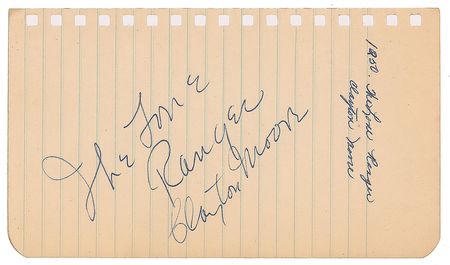 The Lone
Ranger
Clayton Moore
1950. The Lone Ranger
Clayton Moore